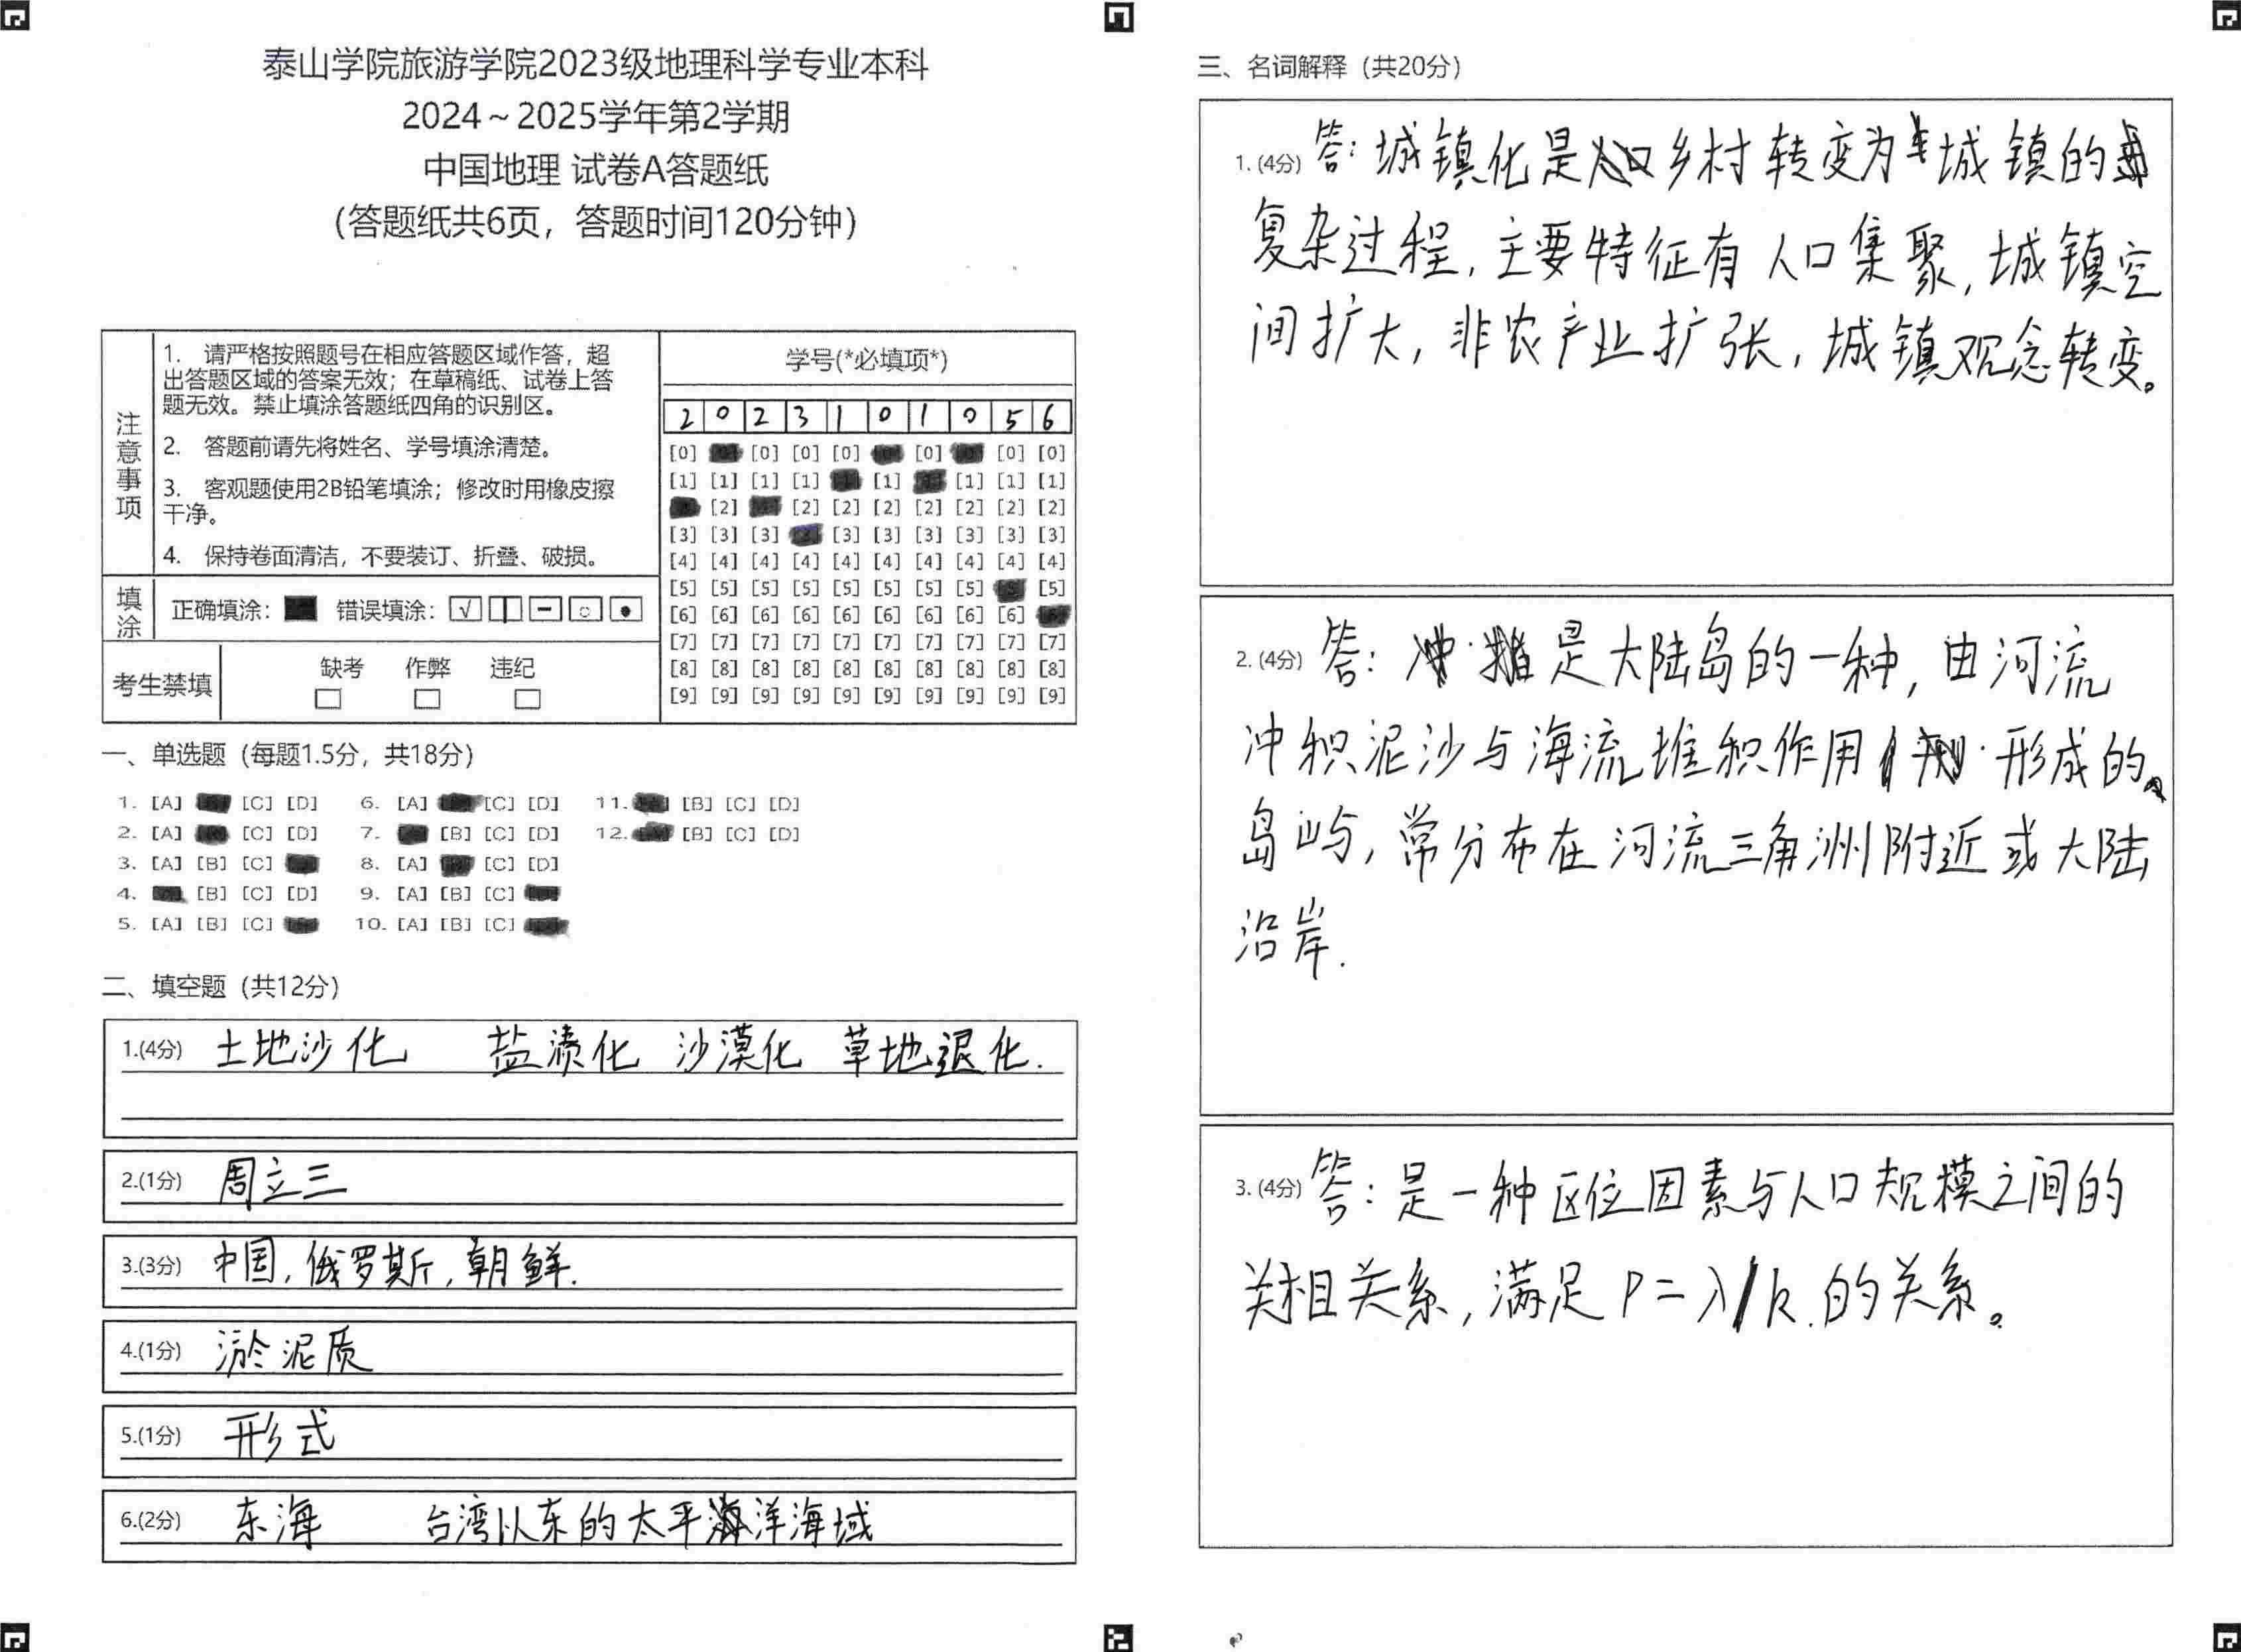 泰山学院旅游学院2023级地理科学专业本科
2024～2025学年第2学期
中国地理 试卷A答题纸
（答题纸共6页，答题时间120分钟）
注意事项
1. 请严格按照题号在相应答题区域作答，超
出答题区域的答案无效；在草稿纸、试卷上答
题无效。禁止填涂答题纸四角的识别区。
2. 答题前请先将姓名、学号填涂清楚。
3. 客观题使用2B铅笔填涂；修改时用橡皮擦
干净。
4. 保持卷面清洁，不要装订、折叠、破损。
填涂
正确填涂： 错误填涂：
考生禁填
缺考 作弊 违纪
学号(*必填项*)
2 0 2 3 1 0 1 0 5 6
[0] [0] [0] [0] [0] [0] [0]
[1] [1] [1] [1] [1] [1] [1] [1]
[2] [2] [2] [2] [2] [2] [2] [2]
[3] [3] [3] [3] [3] [3] [3] [3] [3]
[4] [4] [4] [4] [4] [4] [4] [4] [4] [4]
[5] [5] [5] [5] [5] [5] [5] [5] [5]
[6] [6] [6] [6] [6] [6] [6] [6] [6]
[7] [7] [7] [7] [7] [7] [7] [7] [7] [7]
[8] [8] [8] [8] [8] [8] [8] [8] [8] [8]
[9] [9] [9] [9] [9] [9] [9] [9] [9] [9]
一、单选题（每题1.5分，共18分）
1. [A] [C] [D] 6. [A] [C] [D] 11. [B] [C] [D]
2. [A] [C] [D] 7. [B] [C] [D] 12. [B] [C] [D]
3. [A] [B] [C] 8. [A] [C] [D]
4. [B] [C] [D] 9. [A] [B] [C]
5. [A] [B] [C] 10. [A] [B] [C]
二、填空题（共12分）
1.(4分) 土地沙化 盐渍化 沙漠化 草地退化.
2.(1分) 周立三
3.(3分) 中国, 俄罗斯, 朝鲜.
4.(1分) 淤泥质
5.(1分) 形式
6.(2分) 东海 台湾以东的太平洋海域
三、名词解释（共20分）
1. (4分) 答：城镇化是乡村转变为城镇的
复杂过程, 主要特征有人口集聚, 城镇空
间扩大, 非农产业扩张, 城镇观念转变。
2. (4分) 答：是大陆岛的一种, 由河流
冲积泥沙与海流堆积作用形成的
岛屿, 常分布在河流三角洲附近或大陆
沿岸.
3. (4分) 答：是一种区位因素与人口规模之间的
关相关系, 满足 P=λ/k. 的关系。